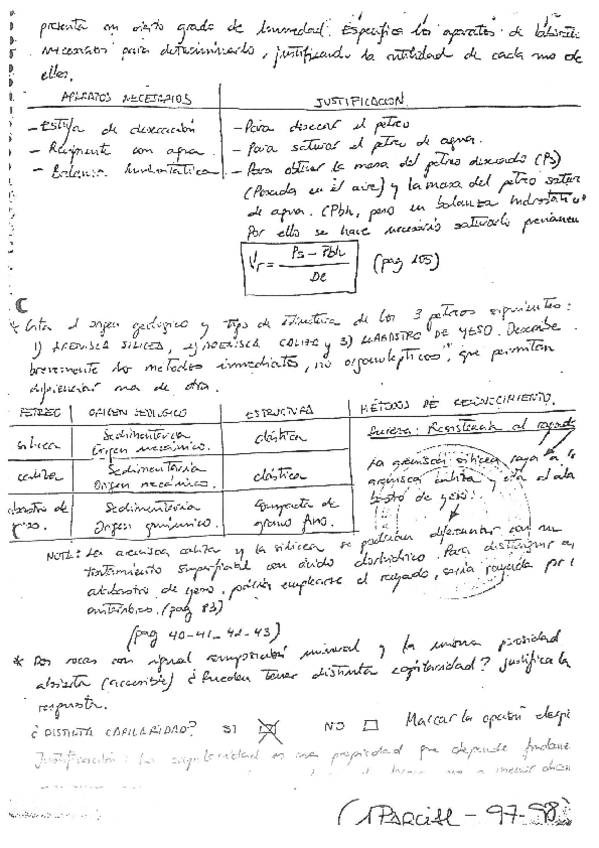 presenta un cierto grado de humedad. Especifica los aparatos de laborato
necesarios para determinarlo, justificando la utilidad de cada uno de
ellos.
APARATOS NECESARIOS JUSTIFICACION
- Estufa de desecación - Para desecar el petreo
- Recipiente con agua. - Para saturar el petreo de agua.
- Balanza hidrostática - Para obtener la masa del petreo desecado (Ps)
(Pesada en el aire) y la masa del petreo satur
de agua. (Pbh, pero en balanza hidrostática
Por ello se hace necesario saturarlo previamen
Vr = Ps - Pbh / De (pag 105)
C
* Cita el origen geológico y tipo de estructura de los 3 petreos siguientes:
1) ARENISCA SILICEA, 2) ARENISCA CALIZA y 3) ALABASTRO DE YESO. Describe
brevemente los metodos inmediatos, no organolepticos, que permitan
diferenciar una de otra.
PETREO ORIGEN GEOLOGICO ESTRUCTURA MÉTODOS DE RECONOCIMIENTO.
silicea Sedimentaria Origen mecánico. clástica Dureza: Resistencia al rayado
caliza Sedimentaria Origen mecánico. clástica La arenisca silicea raya a la
arenisca caliza y esta al ala
bastro de yeso.
alabastro de yeso. Sedimentaria Origen quimico. Compacta de grano fino.
NOTA: La arenisca caliza y la silicea se podrian diferenciar con un
tratamiento superficial con ácido clorhidrico. Para distinguir el
alabastro de yeso, podria emplearse el rayado, seria rayado por
(pag 83)
(pag 40-41-42-43)
* Dos rocas con igual composición mineral y la misma porosidad
abierta (accesible) ¿Pueden tener distinta capilaridad? Justifica la
respuesta.
¿DISTINTA CAPILARIDAD? SI ☒ NO ☐ Marcar la opción elegi
Justificación: La capilaridad es una propiedad que depende fundame
(1 PARCIAL - 97-98)